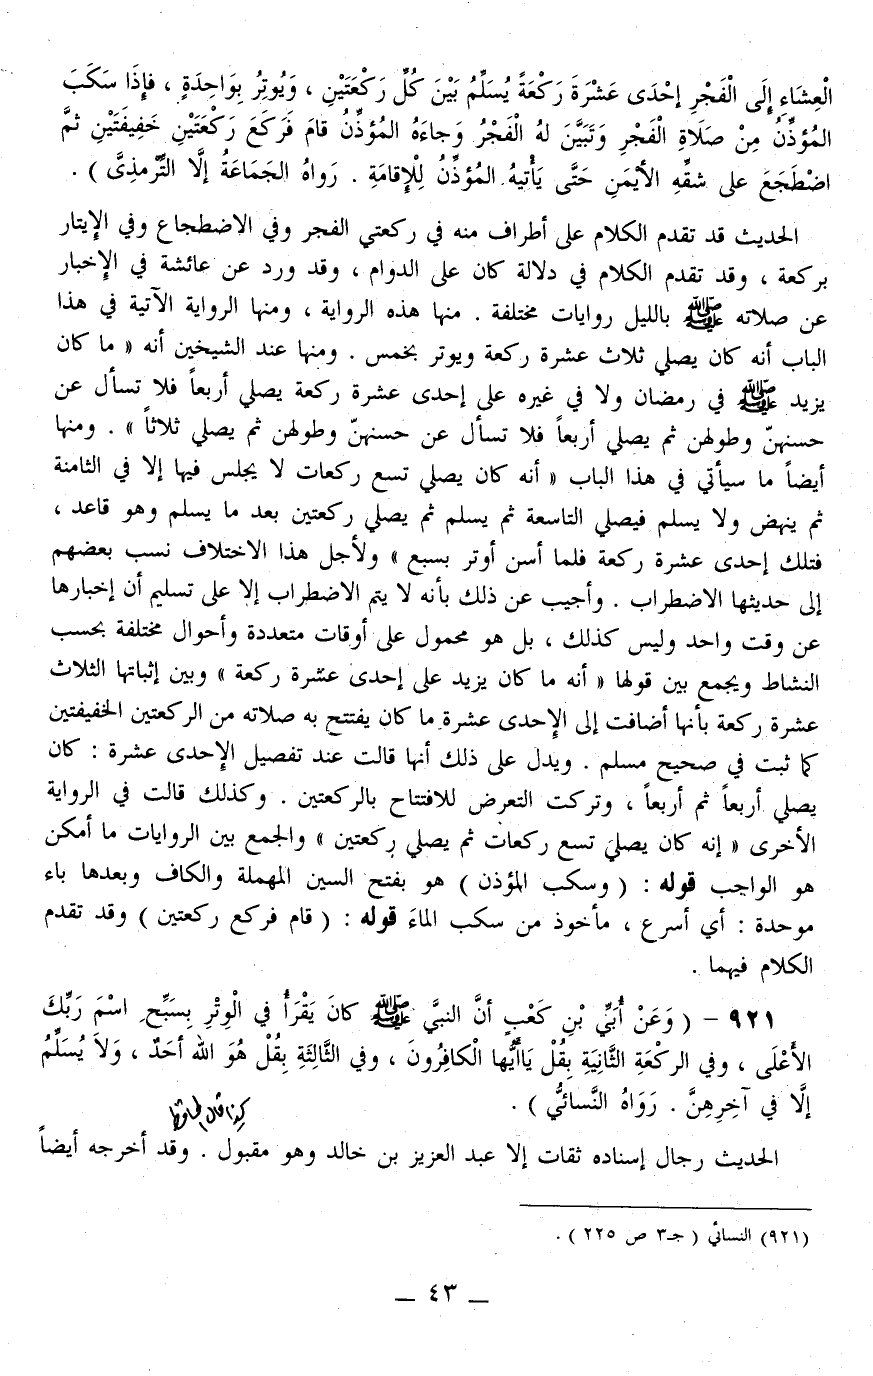 الْعِشَاءِ إِلَى الْفَجْرِ إِحْدَى عَشْرَةَ رَكْعَةً يُسَلِّمُ بَيْنَ كُلِّ رَكْعَتَيْنِ ، وَيُوتِرُ بِوَاحِدَةٍ ، فإِذَا سَكَبَ
المُؤذِّنُ مِنْ صَلَاةِ الْفَجْرِ وَتَبَيَّنَ لهُ الْفَجْرُ وَجاءَهُ المُؤذِّنُ قامَ فَركَعَ رَكْعَتَيْنِ خَفِيفَتَيْنِ ثمَّ
اضْطَجَعَ على شقِّهِ الأيْمَنِ حَتَّى يَأْتيهُ المُؤذِّنُ لِلْإِقامَةِ . رَواهُ الجَمَاعَةُ إلَّا التِّرْمذِىَّ ) .
الحديث قد تقدم الكلام على أطراف منه في ركعتي الفجر وفي الاضطجاع وفي الإيتار
بركعة ، وقد تقدم الكلام في دلالة كان على الدوام ، وقد ورد عن عائشة في الإخبار
عن صلاته ﷺ بالليل روايات مختلفة . منها هذه الرواية ، ومنها الرواية الآتية في هذا
الباب أنه كان يصلي ثلاث عشرة ركعة ويوتر بخمس . ومنها عند الشيخين أنه « ما كان
يزيد ﷺ في رمضان ولا في غيره على إحدى عشرة ركعة يصلي أربعاً فلا تسأل عن
حسنهنّ وطولهن ثم يصلي أربعاً فلا تسأل عن حسنهنّ وطولهن ثم يصلي ثلاثاً » . ومنها
أيضاً ما سيأتي في هذا الباب « أنه كان يصلي تسع ركعات لا يجلس فيها إلا في الثامنة
ثم ينهض ولا يسلم فيصلي التاسعة ثم يسلم ثم يصلي ركعتين بعد ما يسلم وهو قاعد ،
فتلك إحدى عشرة ركعة فلما أسن أوتر بسبع » ولأجل هذا الاختلاف نسب بعضهم
إلى حديثها الاضطراب . وأجيب عن ذلك بأنه لا يتم الاضطراب إلا على تسليم أن إخبارها
عن وقت واحد وليس كذلك ، بل هو محمول على أوقات متعددة وأحوال مختلفة بحسب
النشاط ويجمع بين قولها « أنه ما كان يزيد على إحدى عشرة ركعة » وبين إثباتها الثلاث
عشرة ركعة بأنها أضافت إلى الإحدى عشرة ما كان يفتتح به صلاته من الركعتين الخفيفتين
كما ثبت في صحيح مسلم . ويدل على ذلك أنها قالت عند تفصيل الإحدى عشرة : كان
يصلي أربعاً ثم أربعاً ، وتركت التعرض للافتتاح بالركعتين . وكذلك قالت في الرواية
الأخرى « إنه كان يصلي تسع ركعات ثم يصلي ركعتين » والجمع بين الروايات ما أمكن
هو الواجب قوله : ( وسكب المؤذن ) هو بفتح السين المهملة والكاف وبعدها باء
موحدة : أي أسرع ، مأخوذ من سكب الماء قوله : ( قام فركع ركعتين ) وقد تقدم
الكلام فيهما .
٩٢١ – ( وَعَنْ أُبَيِّ بْنِ كَعْبٍ أنَّ النبيَّ ﷺ كانَ يَقْرَأُ في الْوِتْرِ بِسَبِّحِ اسْمَ رَبِّكَ
الأَعْلَى ، وفي الركْعَةِ الثَّانِيَةِ بِقُلْ يَاأَيُّها الْكافِرُونَ ، وفي الثَّالِثَةِ بِقُلْ هُوَ اللهُ أحَدٌ ، وَلَا يُسَلِّمُ
إلَّا في آخِرِهِنَّ . رَوَاهُ النَّسائيُّ ) .
كذا قال الحافظ
الحديث رجال إسناده ثقات إلا عبد العزيز بن خالد وهو مقبول . وقد أخرجه أيضاً
(٩٢١) النسائي ( جـ٣ ص ٢٢٥ ) .
— ٤٣ —